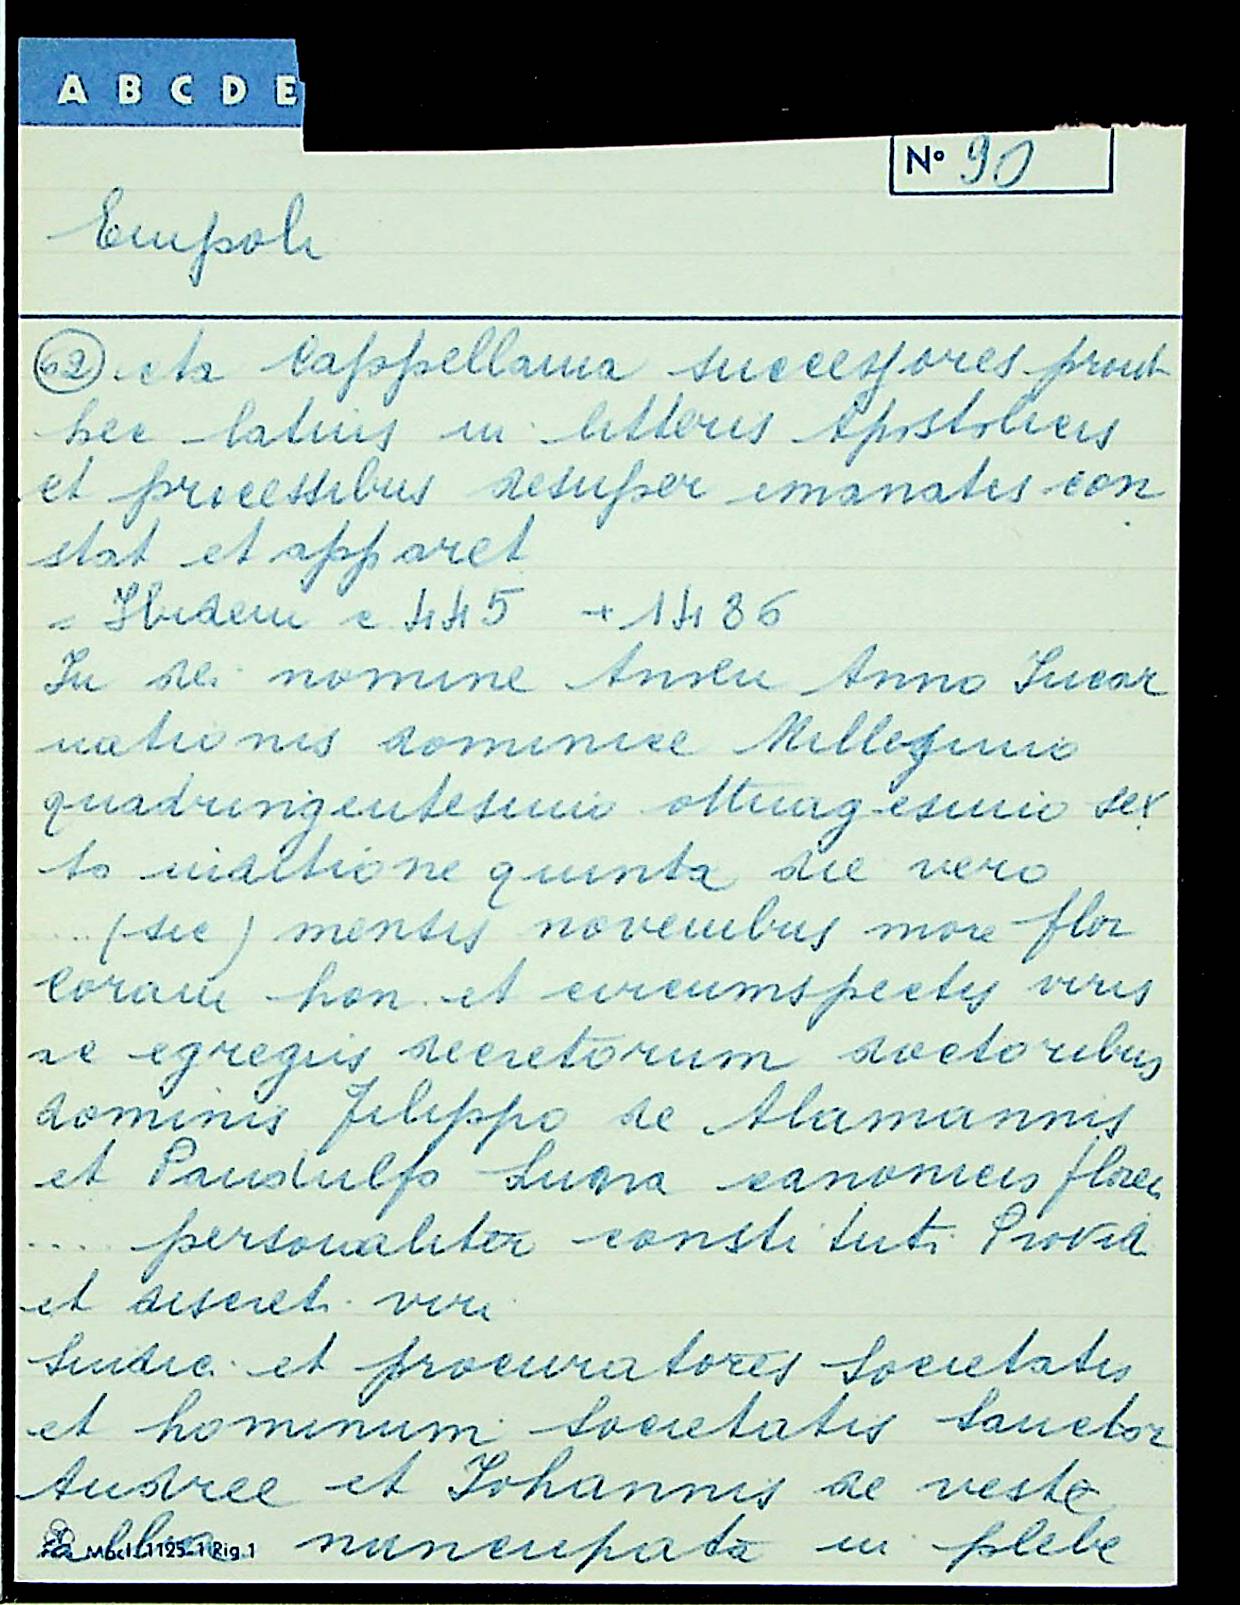 A B C D E
N° 90
Empoli
62) cta Cappellania successores prout
hec latius in litteris Apostolicis
et processibus desuper emanatis con
stat et apparet
= Ibidem c 445 + 1486
In dei nomine Amen Anno Incar
nationis dominice Millesimo
quadringentesimo ottuagesimo sex
to indictione quinta die vero
... (sic) mensis novembris more flor
Coram hon. et circumspectis viris
ac egregiis decretorum doctoribus
dominis Filippo de Alamannis
et Pandulfo Luna canonicis floren
.... personaliter constituti Provid
et discreti viri
Sindici et procuratores Societatis
et hominum Societatis Sanctor
Andree et Johannis de veste
alba nuncupata in plebe
Mod. 1125-1 Rig 1